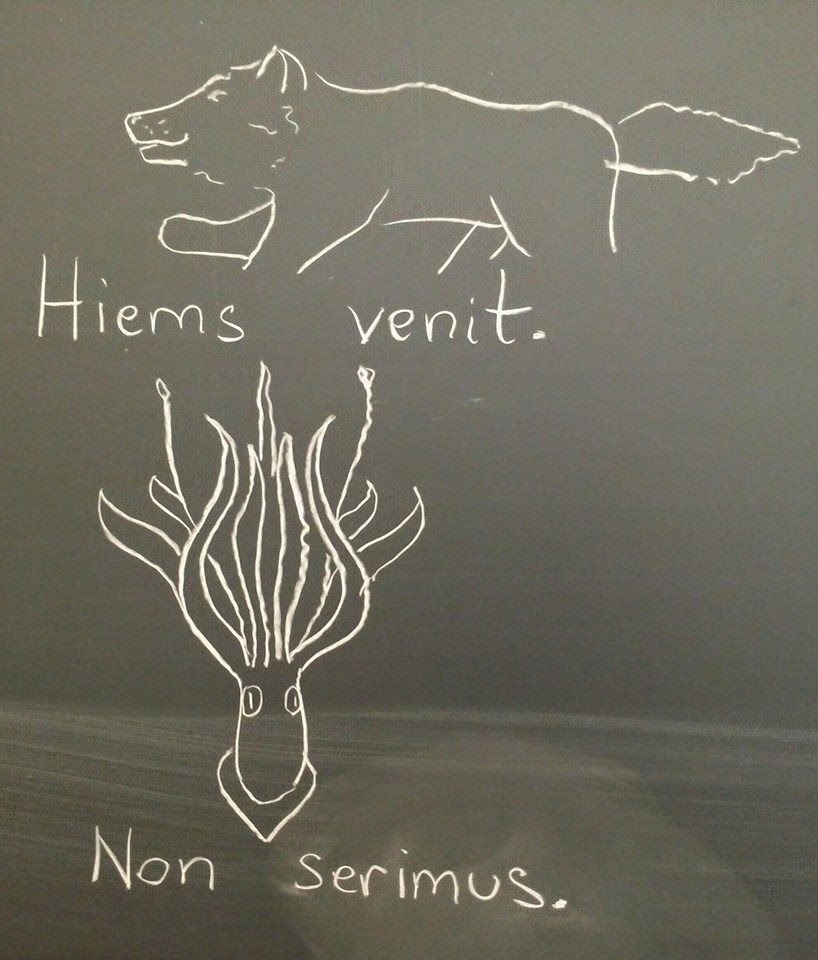 Hiems venit.
Non serimus.